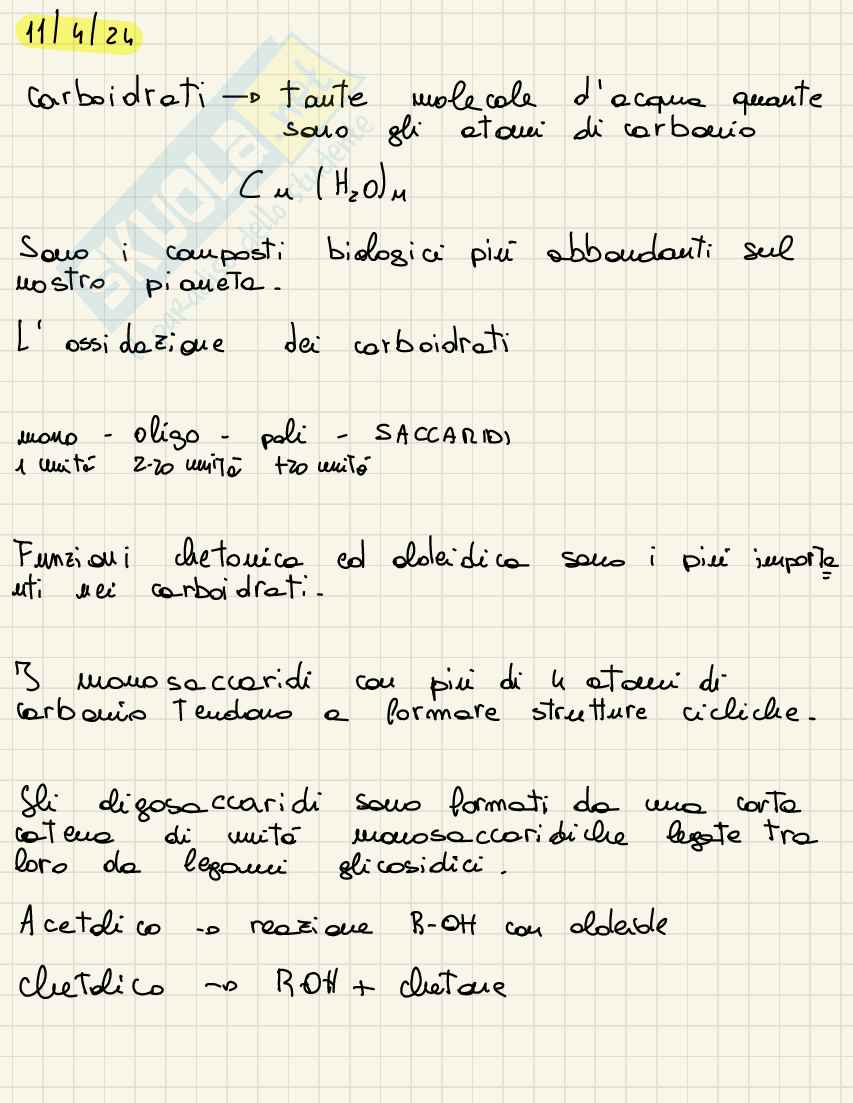 11/4/24
Carboidrati → tante molecole d'acqua quante
sono gli atomi di carbonio
Cn (H₂O)n
Sono i composti biologici più abbondanti sul
nostro pianeta.
L'ossidazione dei carboidrati
mono - oligo - poli - SACCARIDI
1 unità 2-20 unità +20 unità
Funzioni chetonica ed aldeidica sono i più importa
nti nei carboidrati.
I monosaccaridi con più di 4 atomi di
carbonio tendono a formare strutture cicliche.
Gli oligosaccaridi sono formati da una corta
catena di unità monosaccaridiche legate tra
loro da legami glicosidici.
Acetalico → reazione R-OH con aldeide
chetalico → ROH + chetone
SKUOLA.net
paradiso dello studente